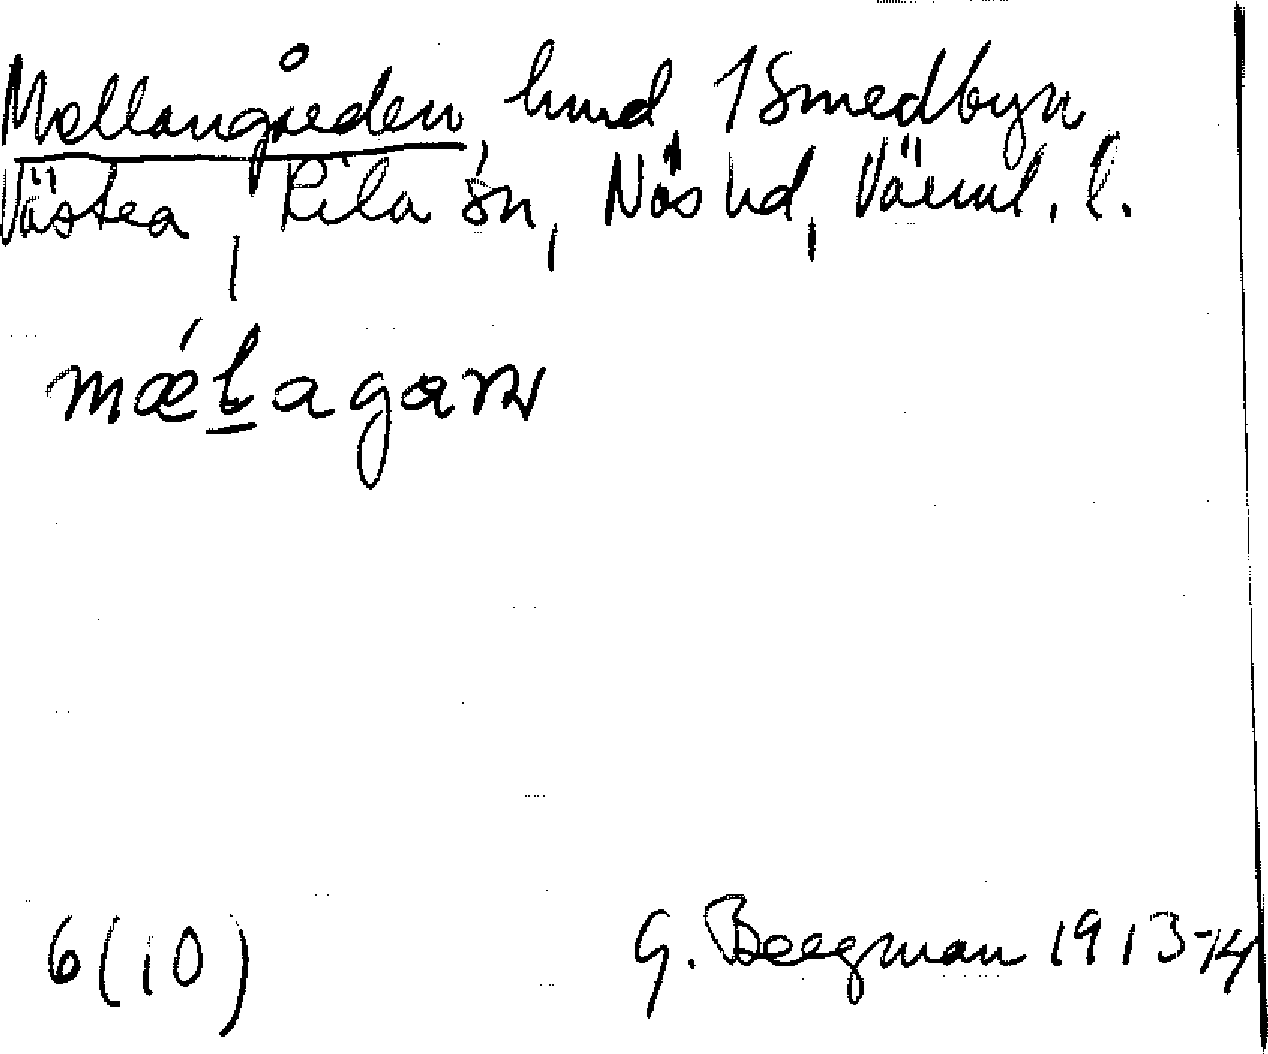 Mellangården, hmd, 1 Smedbyn
Västra, Kila sn, Näs hd, Värml. l.
6(10)
G. Bergman 1913-14